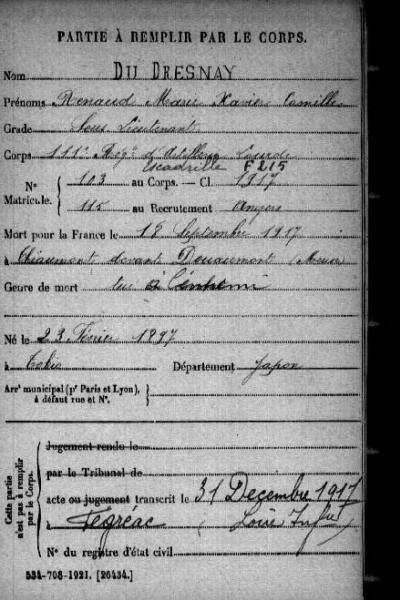 PARTIE À REMPLIR PAR LE CORPS.
Nom DU DRESNAY
Prénoms Renaud Marie Xavier Camille
Grade Sous Lieutenant
Corps 111e Régt d'Artillerie Lourde
Escadrille F 215
N° Matricule. { 103 au Corps. — Cl. 1917
115 au Recrutement Angers
Mort pour la France le 18 Septembre 1917
à Thiaumont devant Douaumont (Meuse)
Genre de mort tué à l'ennemi
Né le 23 Février 1897
à Tokio Département Japon
Arrt municipal (pr Paris et Lyon), à défaut rue et N°.
Cette partie n'est pas à remplir par le Corps.
Jugement rendu le
par le Tribunal de
acte ou jugement transcrit le 31 Decembre 1917
à Fégréac (Loire Infre)
N° du registre d'état civil
534-708-1921. [26434.]